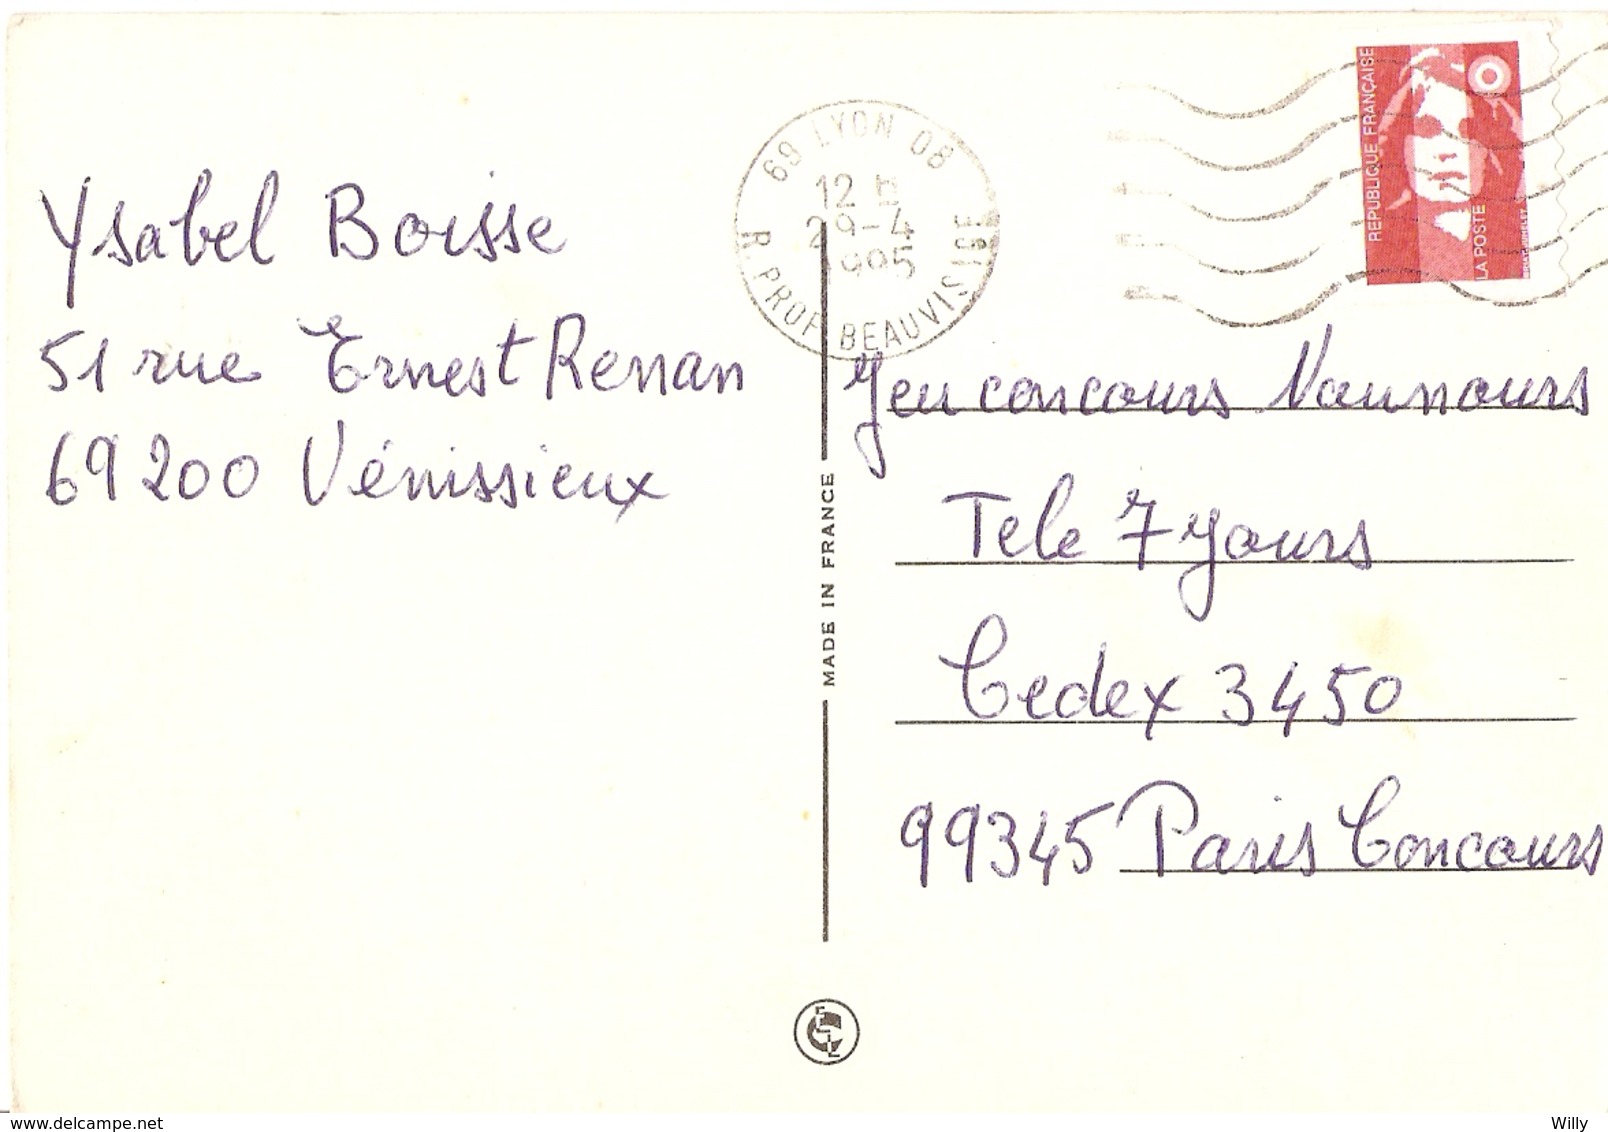 Ysabel Boisse
51 rue Ernest Renan
69200 Vénissieux
69 LYON 08
12 H
29-4
1995
R. PROF BEAUVISAGE
REPUBLIQUE FRANÇAISE
LA POSTE
MADE IN FRANCE
Jeu concours Nounours
Tele 7 Jours
Cedex 3450
99345 Paris Concours
delcampe.net
Willy